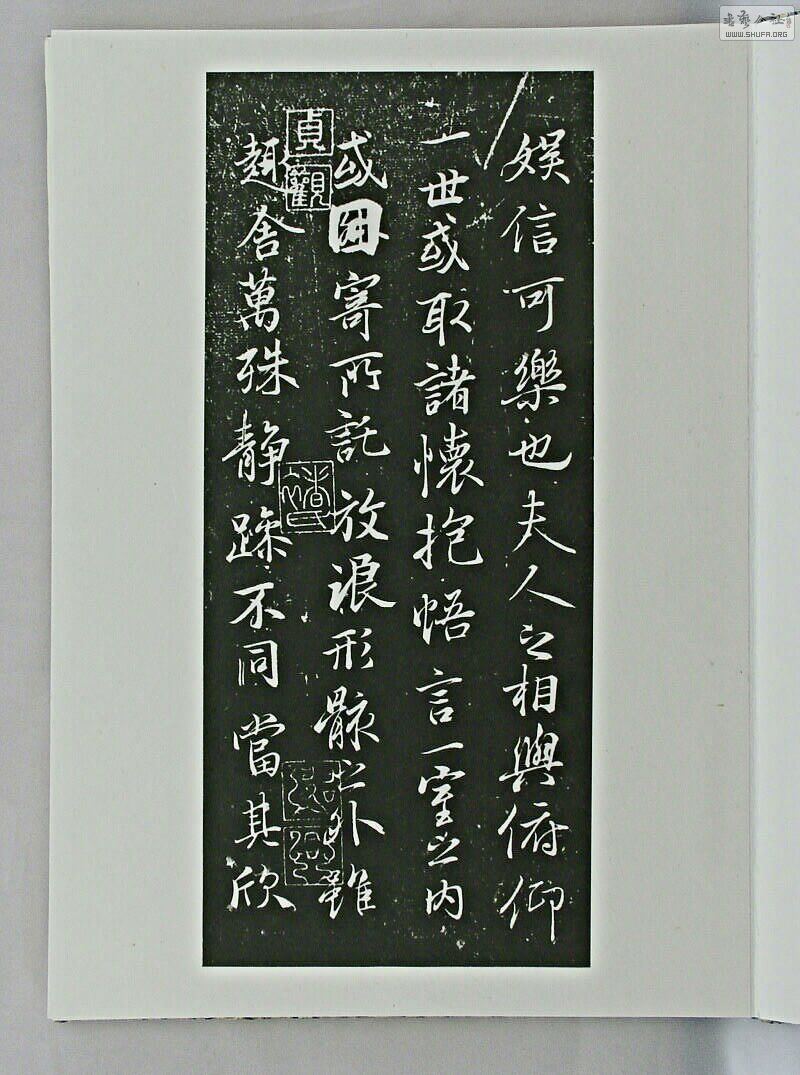 娛信可樂也夫人之相與俯仰
一世或取諸懷抱悟言一室之内
或因寄所託放浪形骸之外雖
趣舍萬殊静躁不同當其欣
貞觀
WWW.SHUFA.ORG